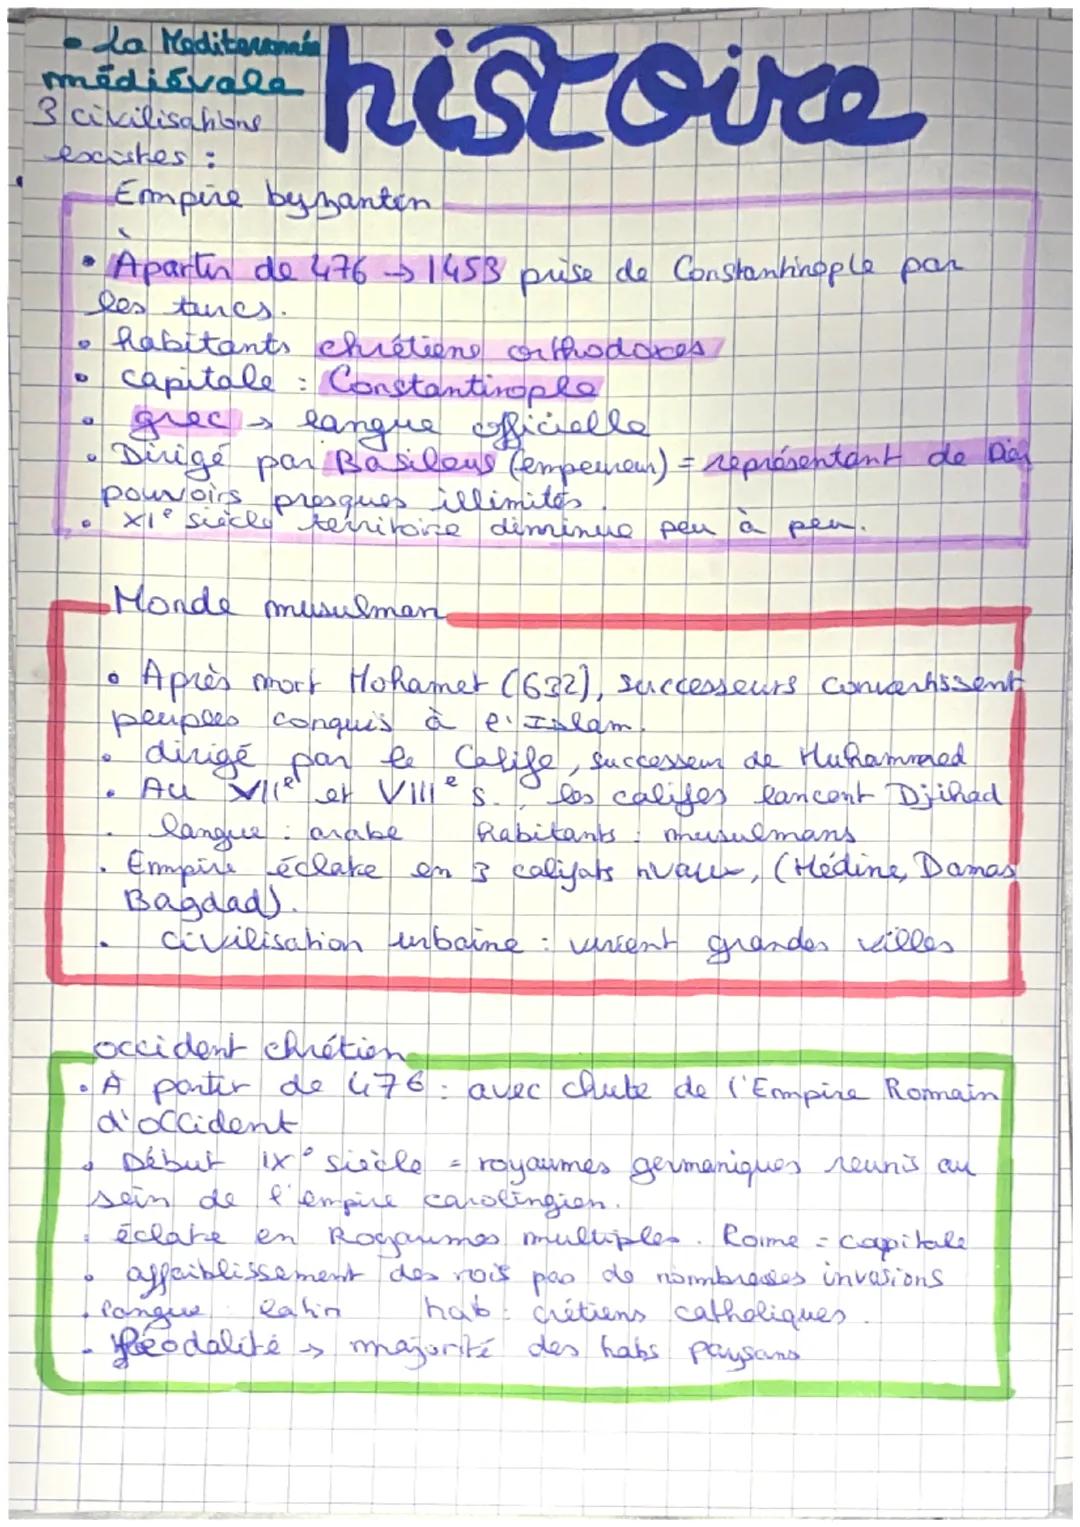 • La Mediterannée
médiévale
histoire
3 civilisations
existes :
Empire byzantin
• À partir de 476 → 1453 prise de Constantinople par
les turcs.
• habitants chrétiens orthodoxes
• capitale : Constantinople
• grec → langue officielle
• Dirigé par Basileus (empereur) = représentant de Dieu
pouvoirs presques illimités.
• XIe siècle territoire diminue peu à peu.
Monde musulman
• Après mort Mohamet (632), successeurs convertissent
peuples conquis à l'Islam.
• dirigé par le Calife, successeur de Muhammed
• Au VIIe et VIIIe s., les califes lancent Djihad
• langue : arabe habitants : musulmans
• Empire éclate en 3 califats rivaux, (Médine, Damas
Bagdad).
• civilisation urbaine : vivent grandes villes
occident chrétien
• À partir de 476 : avec chute de l'Empire Romain
d'occident
• Début IXe siècle = royaumes germaniques réunis au
sein de l'empire carolingien.
• éclate en Royaumes multiples. Rome = capitale
• affaiblissement des rois pas de nombreuses invasions
• langue : latin hab : crétiens catholiques.
• féodalité → majorité des habs paysans